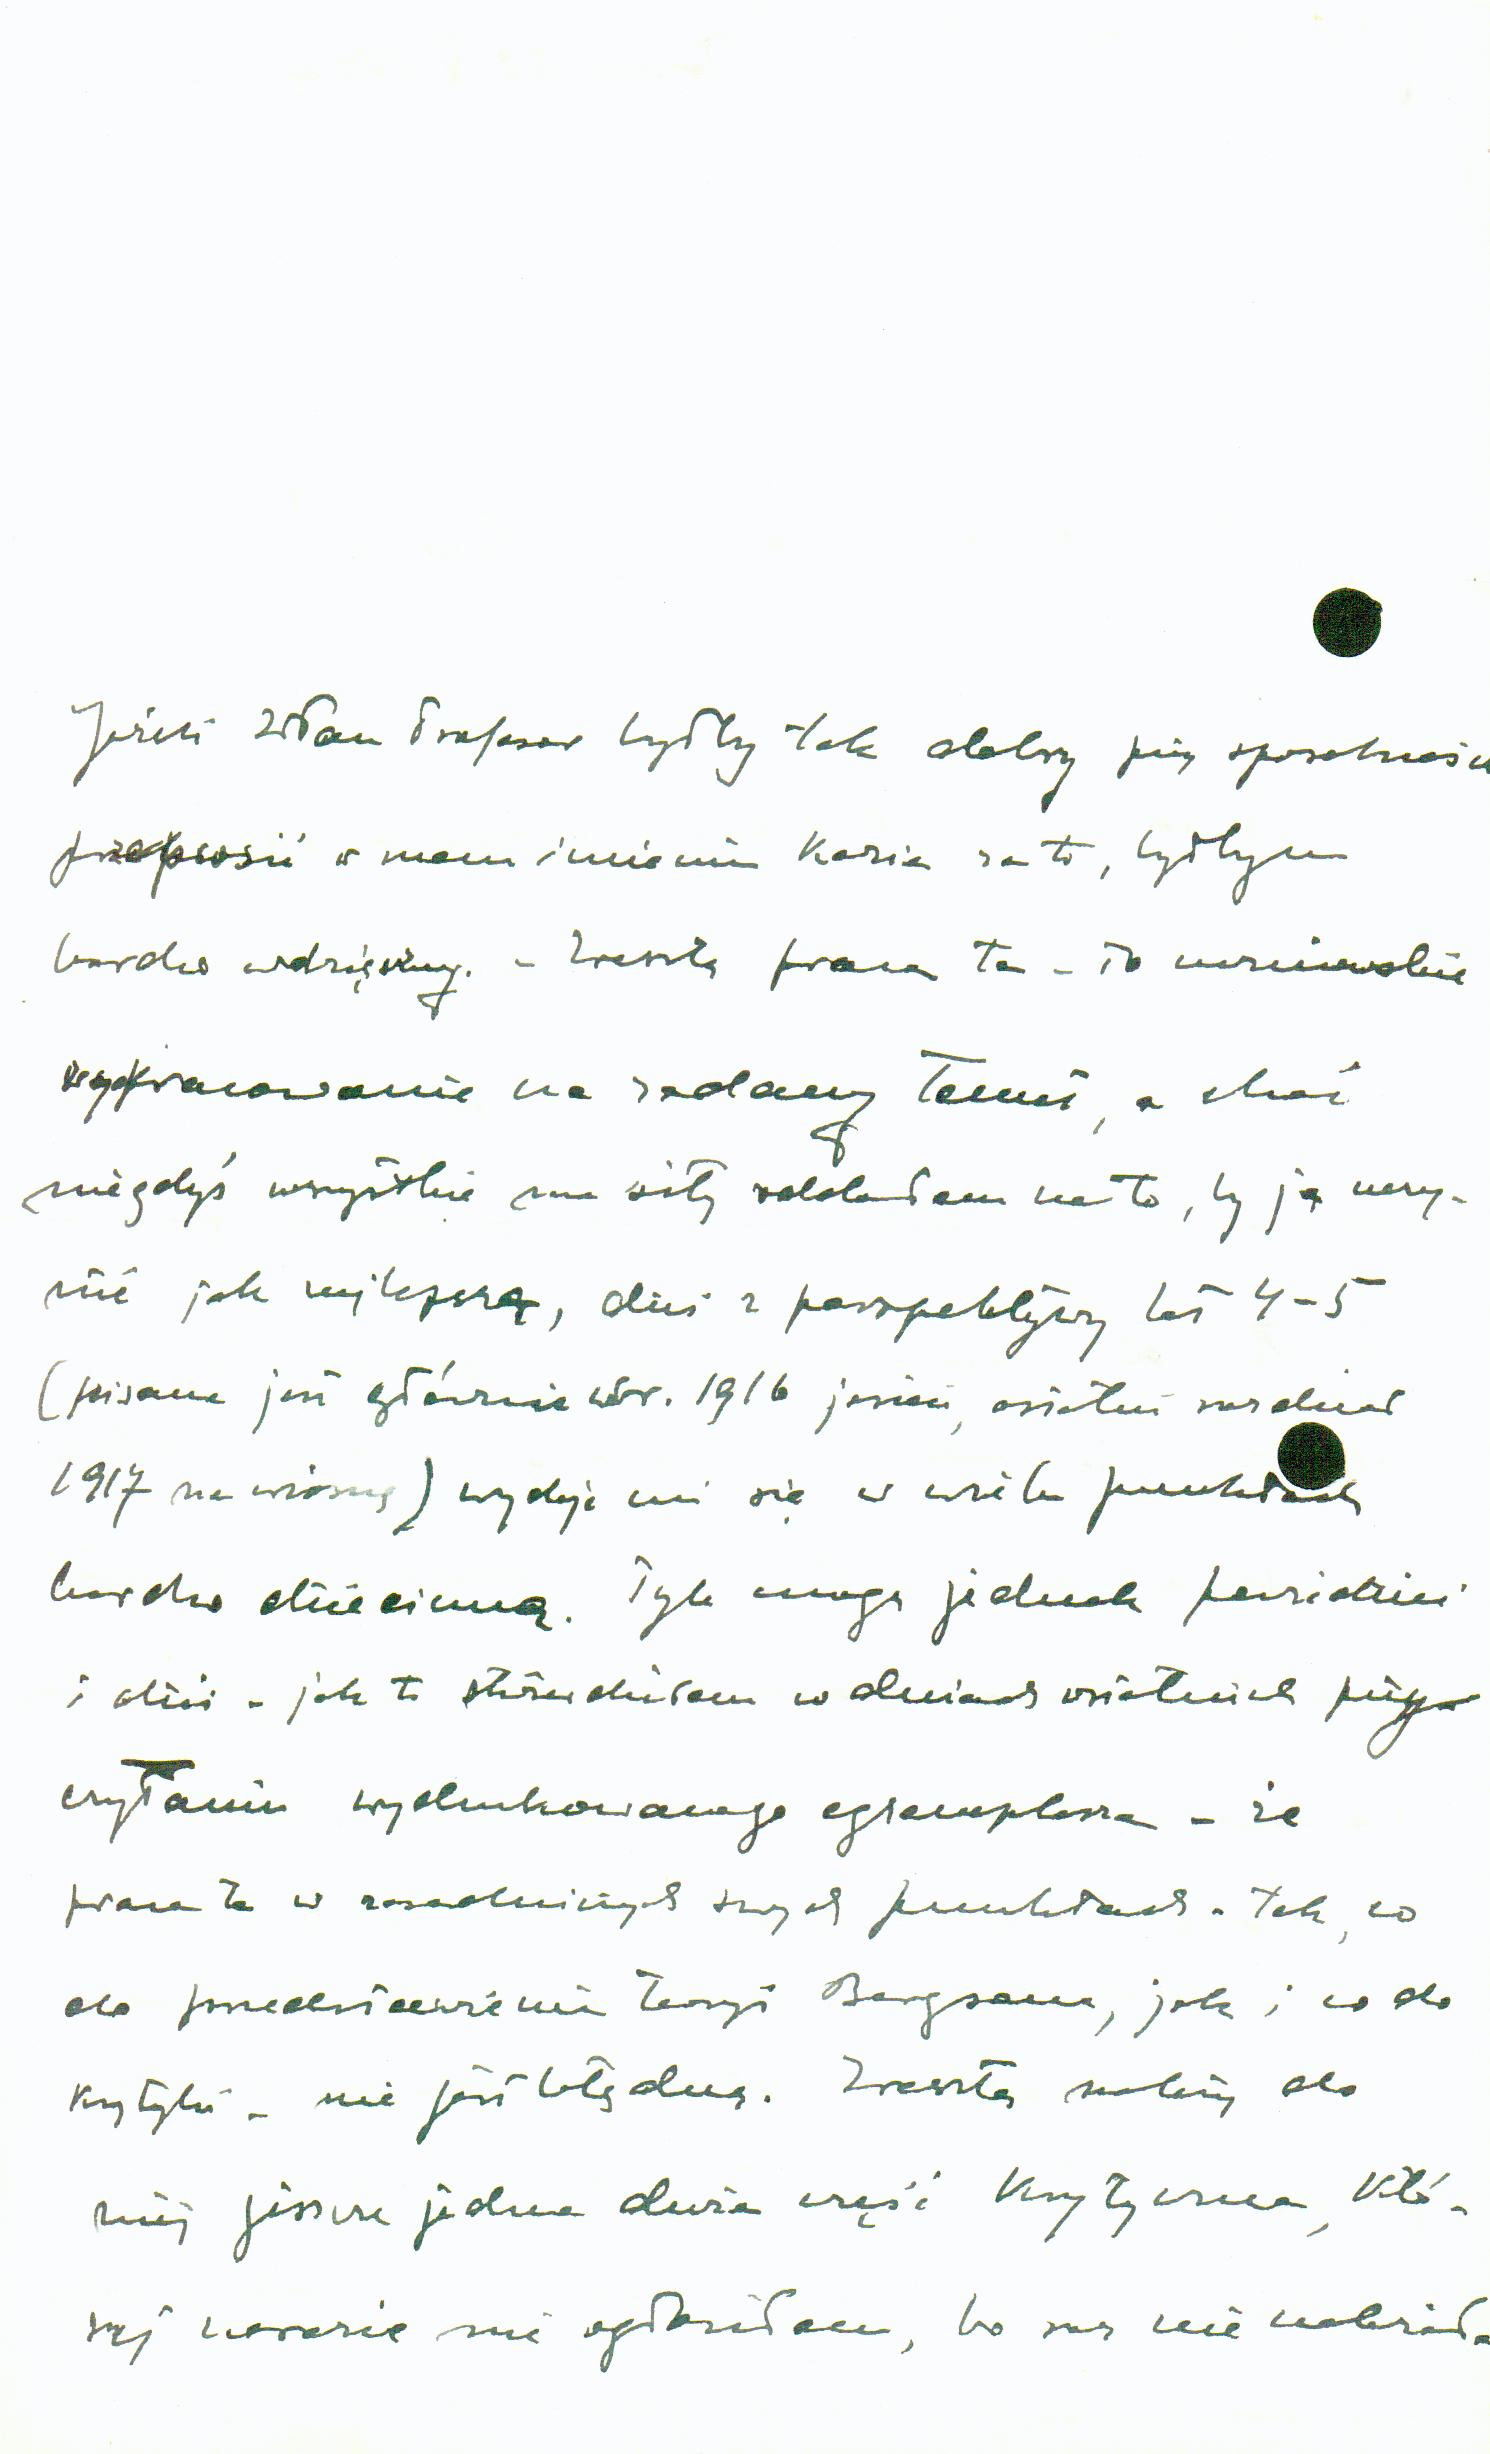 Jeżeli Pan Profesor byłby tak dobry przy sposobności
przeprosić w mem imieniu Kazia za to, byłbym
bardzo wdzięczny. – Zresztą praca ta – to uczniowskie
wypracowanie na zadany temat, a choć
niegdyś wszystkie me siły oddałem na to, by ją uczy-
nić jak najlepszą, dziś z perspektywy lat 4–5
(pisana jest głównie w r. 1916 jesień, ostatni rozdział
1917 na wiosnę) wydaje mi się w wielu punktach
bardzo dziecinną. Tyle mogę jednak powiedzieć
i dziś – jak to stwierdziłem w dniach ostatnich przy
czytaniu wydrukowanego egzemplarza – że
praca ta w zasadniczych swych punktach – tak, co
do przedstawienia teoryi Bergsona, jak i co do
krytyki – nie jest błędną. Zresztą należy do
niej jeszcze jedna duża część krytyczna, któ-
rej narazie nie ogłosiłem, bo raz nie należała